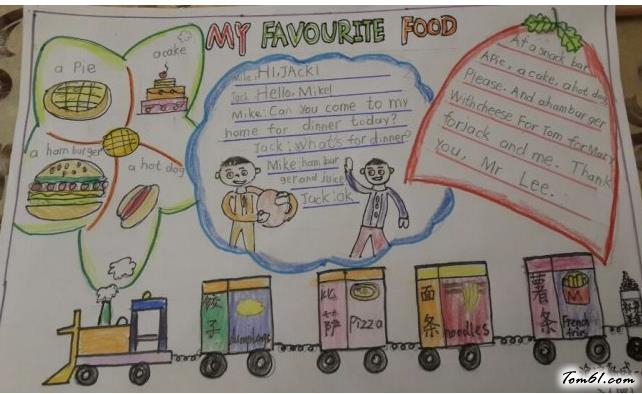 MY FAVOURITE FOOD
a Pie
a cake
a hamburger
a hot dog
Mike: HI, JACk!
Jack: Hello, Mike!
Mike: Can you come to my
home for dinner today?
Jack: what's for dinner?
Mike: hambur
ger and juice
Jack: ok
At a snack bar
APie, a cake, a hot dog,
Please. And ahamburger
With cheese For Tom for Mary
for jack and me. Thank
you, Mr Lee.
饺子
dumplings
比萨
Pizza
面条
noodles
薯条
M
French
fries
Tom61.com